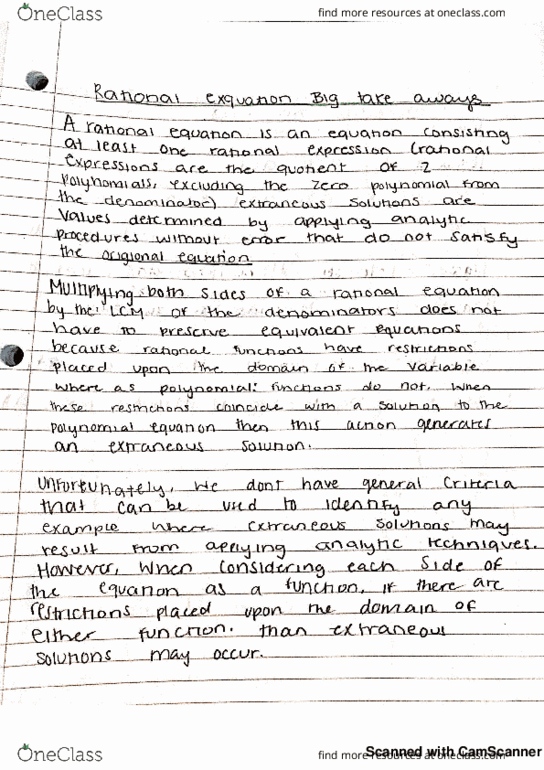 OneClass
find more resources at oneclass.com
Rational exquation Big take aways
A rational equation is an equation consisting
at least one rational expression (rational
expressions are the quotient of 2
polynomials, excluding the zero polynomial from
the denominator) extraneous solutions are
values determined by applying analytic
procedures without error that do not satisfy
the origional equation
Multiplying both sides of a rational equation
by the LCM of the denominators does not
have to preserve equivalent equations
because rational functions have restrictions
placed upon the domain of the variable
where as polynomial functions do not. When
these restrictions coincide with a solution to the
polynomial equation then this action generates
an extraneous solution.
Unfortunately, we dont have general criteria
that can be used to identify any
example where extraneous solutions may
result from applying analytic techniques.
However, when considering each side of
the equation as a function, if there are
restrictions placed upon the domain of
either function. than extraneous
solutions may occur.
OneClass
find more resources at oneclass.com
Scanned with CamScanner